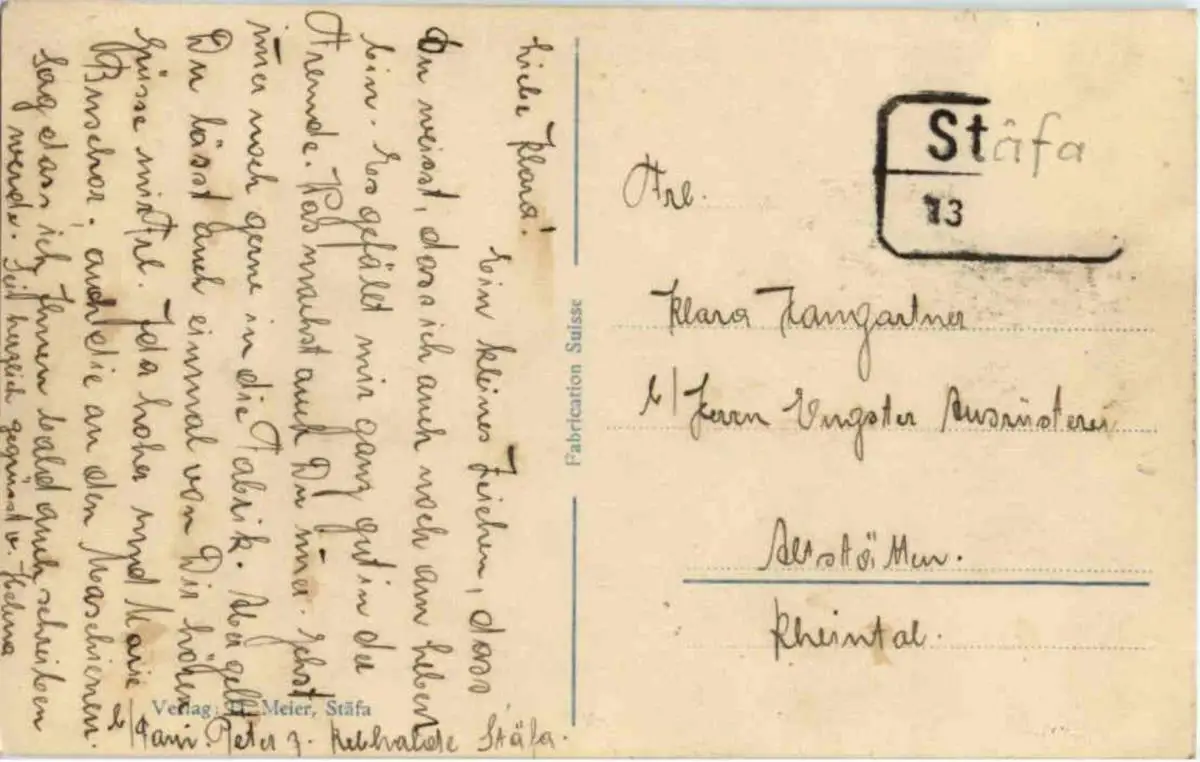 Liebe Klara!
Ein kleines Zeichen, dass
Du weisst, dass ich auch noch am leben
bin. Es gefällt mir ganz gut in der
Fremde. Was machst auch Du im̄er. Gehst
im̄er noch gerne in die Fabrik. Aber gell
Du lässt auch einmal von Dir hören
Grüsse mir Frl. Ida hoher und Marie
Buschor. auch die an den Maschienen.
Sag dass ich Ihnen bald auch schreiben
werde. Sei herzlich gegrüsst v. Helma
b/Fam. Peter z. Rebhalde Stäfa.
Verlag: H. Meier, Stäfa
Fabrication Suisse
Stäfa
13
Frl.
Klara Hamgartner
b/ Herrn Eugster Ausrüsterei
Altstätten.
Rheintal.